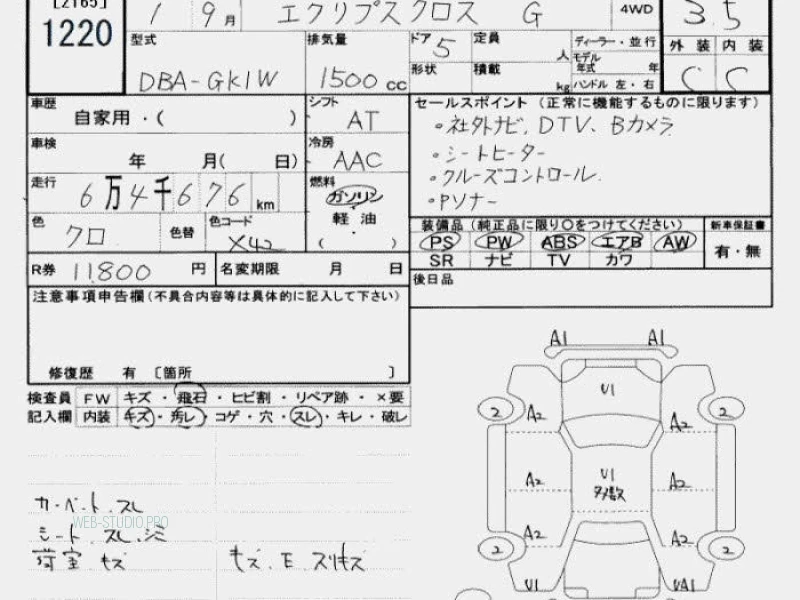 [2165]
1220
1 9月 エクリプスクロス G 4WD 3.5
型式 排気量 ドア 5 定員 人 ディーラー・並行 モデル年式 年 外装 内装
DBA-GK1W 1500 cc 形状 積載 kg ハンドル 左・右 C C
車歴 自家用・( ) シフト AT
車検 年 月( 日) 冷房 AAC
走行 6万4千676 km 燃料 ガソリン 軽油 ( )
色 クロ 色替 色コード X42
R券 11,800 円 名変期限 月 日
セールスポイント (正常に機能するものに限ります)
・社外ナビ、DTV、Bカメラ
・シートヒーター
・クルーズコントロール
・Pソナー
装備品 (純正品に限り○をつけてください) 新車保証書
PS PW ABS エアB AW 有・無
SR ナビ TV カワ
後日品
注意事項申告欄(不具合内容等は具体的に記入して下さい)
修復歴 有 〔箇所 〕
検査員 FW キズ・飛石・ヒビ割・リペア跡・×要
記入欄 内装 キズ・汚レ・コゲ・穴・スレ・キレ・破レ
カーペット スレ
WEB-STUDIO.PRO
シート スレ、シミ
荷室 キズ
キズ、E、スリキズ
A1 A1
U1
2 A2 A2 2
A2 U1 多数 A2
A2 A2
2 2
U1 UA1